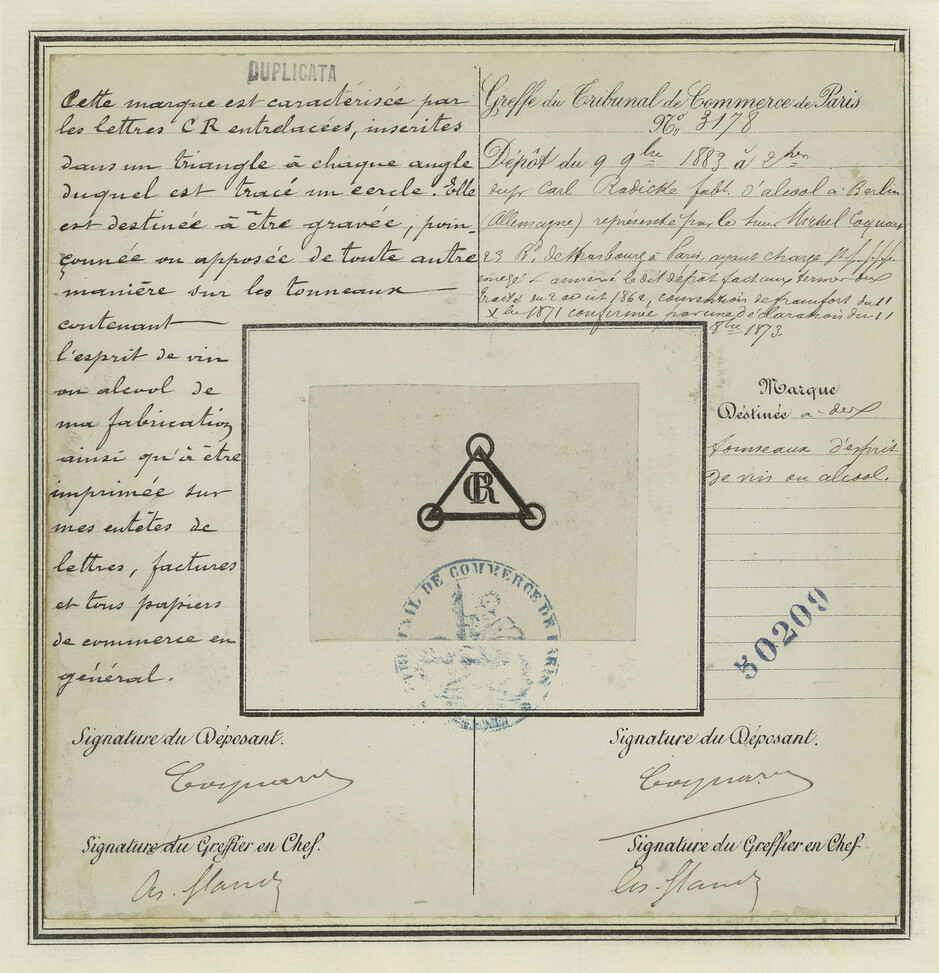 DUPLICATA
Cette marque est caractérisée par
les lettres CR entrelacées, inscrites
dans un triangle à chaque angle
duquel est tracé un cercle. Elle
est destinée à être gravée, poin-
çonnée ou apposée de toute autre
manière sur les tonneaux
contenant
l'esprit de vin
ou alcool de
ma fabrication
ainsi qu'à être
imprimée sur
mes entêtes de
lettres, factures
et tous papiers
de commerce en
général.
Greffe du Tribunal de Commerce de Paris
No. 3178
Dépôt du 9 9bre 1883 à 2 hres
du sr Carl Radicke fabt. d'alcool à Berlin
(Allemagne) représenté par le sieur Michel
23 Bd. de Strasbourg à Paris, ayant charge
le dit dépôt fait aux termes du
traité du 2 août 1862, convention de francfort du 11
Xbre 1871 confirmée par une déclaration du 11
8bre 1873
Marque
Destinée à des
tonneaux d'esprit
de vin ou alcool.
CR
TRIBUNAL DE COMMERCE DE PARIS
50209
Signature du Déposant.
Signature du Déposant.
Signature du Greffier en Chef.
Signature du Greffier en Chef.